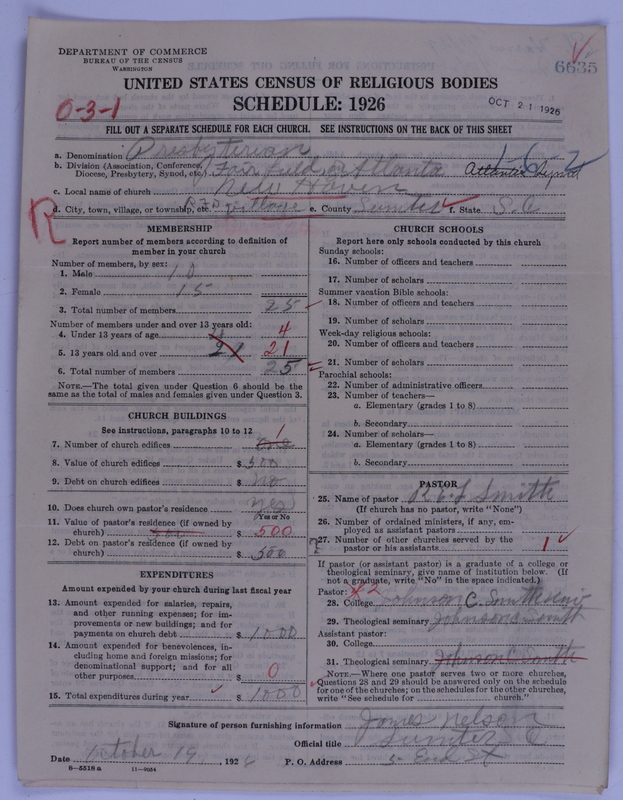 DEPARTMENT OF COMMERCE
BUREAU OF THE CENSUS
WASHINGTON
6635
UNITED STATES CENSUS OF RELIGIOUS BODIES
SCHEDULE: 1926
OCT 21 1926
0-3-1
FILL OUT A SEPARATE SCHEDULE FOR EACH CHURCH. SEE INSTRUCTIONS ON THE BACK OF THIS SHEET
a. Denomination Presbyterian
b. Division (Association, Conference, Diocese, Presbytery, Synod, etc.) Fairfield Atlanta Atlantic Synod
c. Local name of church New Haven
d. City, town, village, or township, etc. RFD village e. County Sumter f. State S.C
R
MEMBERSHIP
Report number of members according to definition of
member in your church
Number of members, by sex:
1. Male 10
2. Female 15
3. Total number of members 25
Number of members under and over 13 years old:
4. Under 13 years of age 4 4
5. 13 years old and over 21 21
6. Total number of members 25
NOTE.—The total given under Question 6 should be the
same as the total of males and females given under Question 3.
CHURCH BUILDINGS
See instructions, paragraphs 10 to 12
7. Number of church edifices one 1
8. Value of church edifices $ 500
9. Debt on church edifices $ no
10. Does church own pastor's residence yes
Yes or No
11. Value of pastor's residence (if owned by
church) $ 500
12. Debt on pastor's residence (if owned by
church) $ 500
EXPENDITURES
Amount expended by your church during last fiscal year
13. Amount expended for salaries, repairs,
and other running expenses; for im-
provements or new buildings; and for
payments on church debt $ 1000
14. Amount expended for benevolences, in-
cluding home and foreign missions; for
denominational support; and for all
other purposes $ 0
15. Total expenditures during year $ 1000
CHURCH SCHOOLS
Report here only schools conducted by this church
Sunday schools:
16. Number of officers and teachers
17. Number of scholars
Summer vacation Bible schools:
18. Number of officers and teachers
19. Number of scholars
Week-day religious schools:
20. Number of officers and teachers
21. Number of scholars
Parochial schools:
22. Number of administrative officers
23. Number of teachers—
a. Elementary (grades 1 to 8)
b. Secondary
24. Number of scholars—
a. Elementary (grades 1 to 8)
b. Secondary
PASTOR
25. Name of pastor Smith
(If church has no pastor, write "None")
26. Number of ordained ministers, if any, em-
ployed as assistant pastors
27. Number of other churches served by the
pastor or his assistants 1
If pastor (or assistant pastor) is a graduate of a college or
theological seminary, give name of institution below. (If
not a graduate, write "No" in the space indicated.)
Pastor:
28. College Johnson C. Smith
29. Theological seminary Johnson C Smith
Assistant pastor:
30. College
31. Theological seminary Johnson C Smith
NOTE.—Where one pastor serves two or more churches,
Questions 28 and 29 should be answered only on the schedule
for one of the churches; on the schedules for the other churches,
write "See schedule for church."
Signature of person furnishing information James Nelson
Official title Sumter
Date October 19, 1926 P. O. Address
8—5518a 11—9054